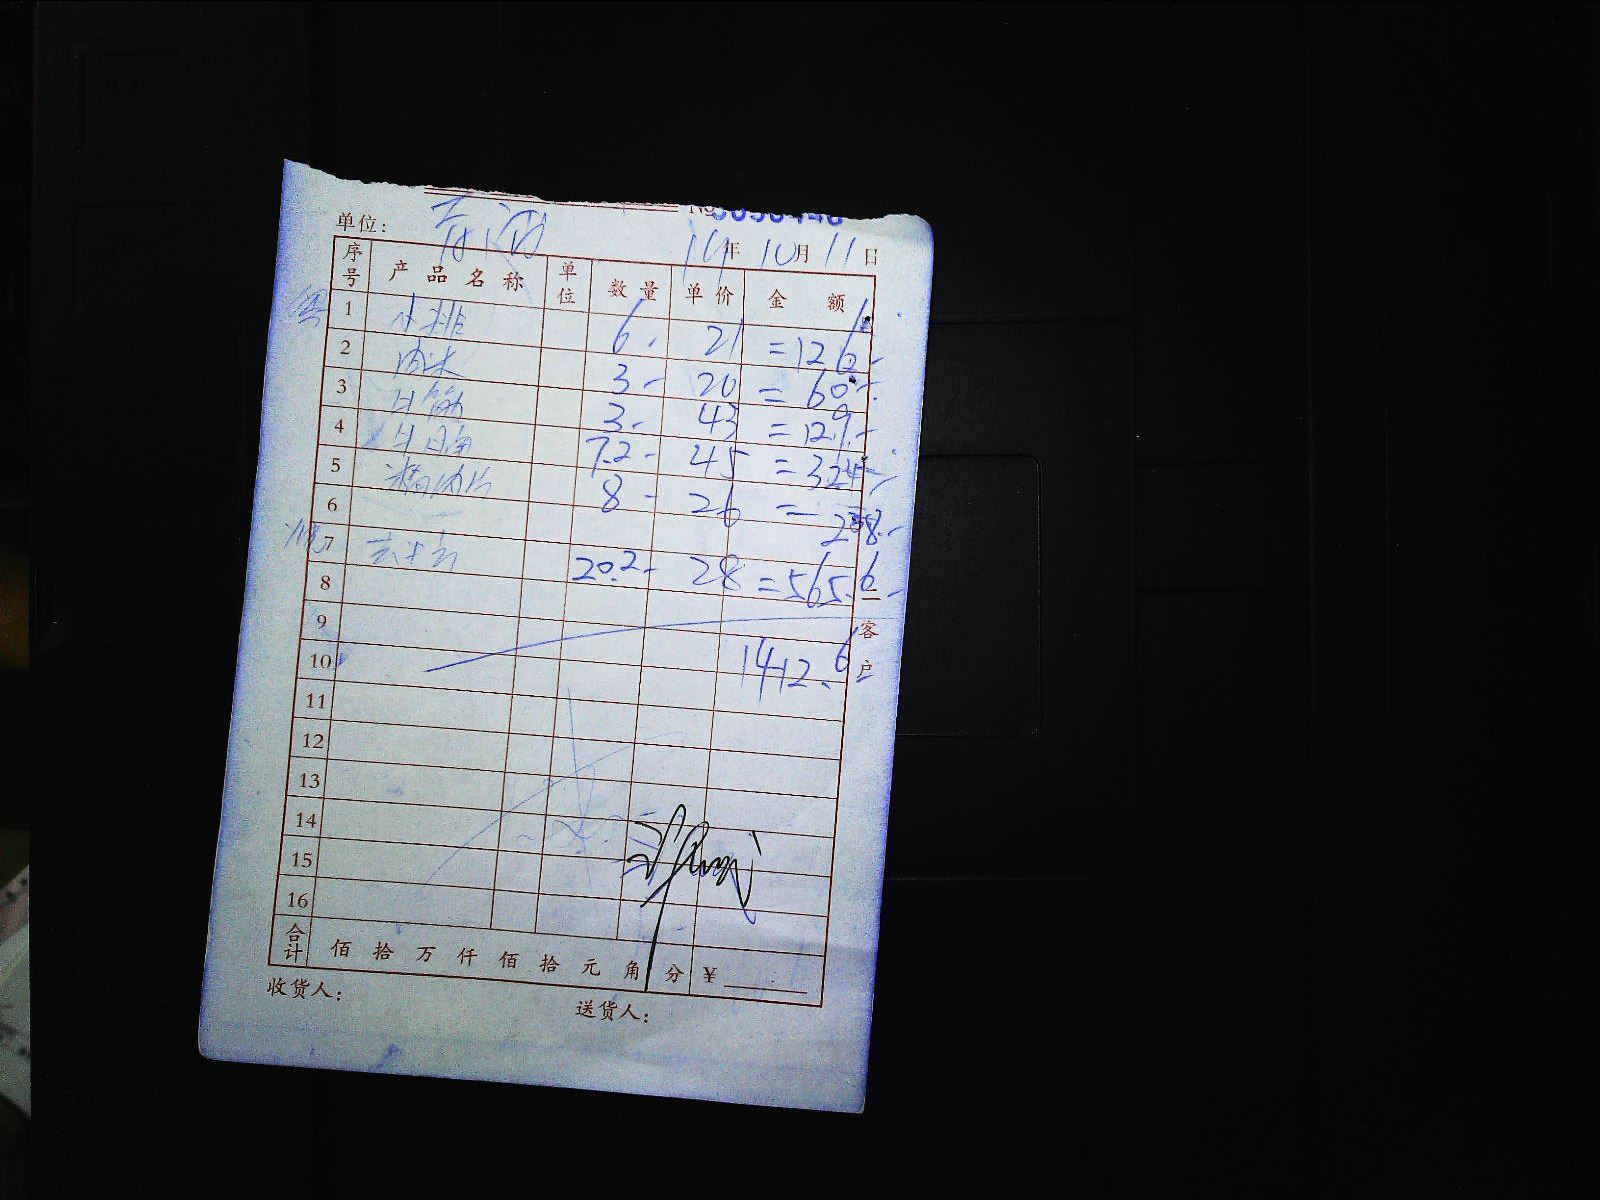 单位： 14年10月11日
序号 产品名称 单位 数量 单价 金额
1 小排 6. 21 =126.-
2 肉末 3- 20 = 60.-
3 牛筋 3- 43 =129.-
4 牛腩 7.2- 45 =324.-
5 精肉片 8- 26 = 208.-
6
7 20.2- 28 =565.6-
8
9
10 1412.6
11
12
13
14
15
16
合计 佰 拾 万 仟 佰 拾 元 角 分 ￥
收货人： 送货人：
二客户